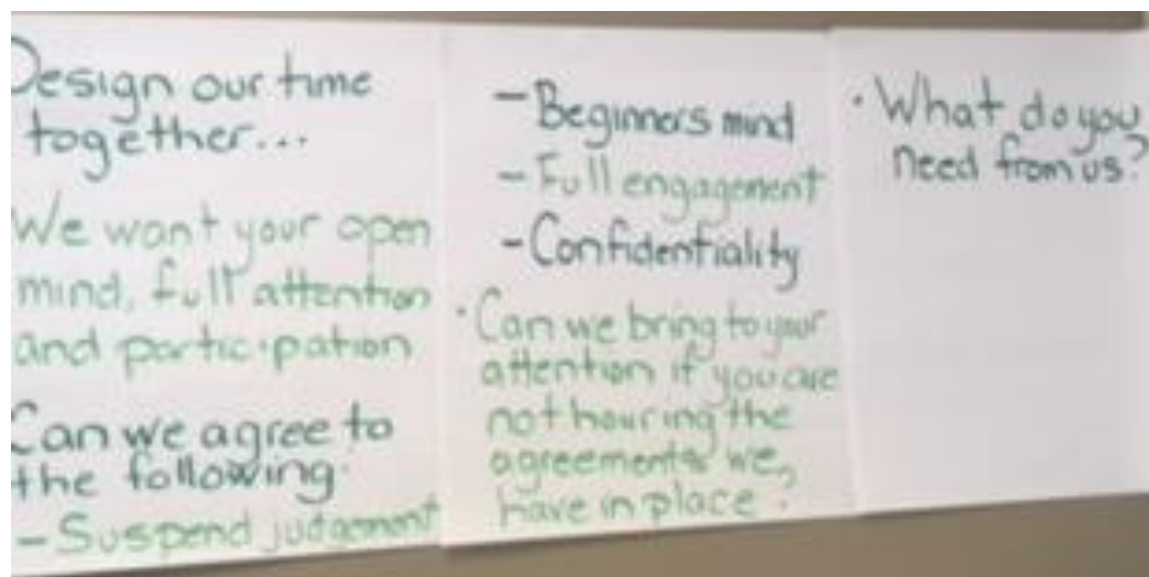 Design our time
together...
We want your open
mind, full attention
and participation
Can we agree to
the following.
- Suspend judgement
- Beginners mind
- Full engagement
- Confidentiality
• Can we bring to your
attention if you are
not houring the
agreements we,
have in place?
• What do you
need from us?